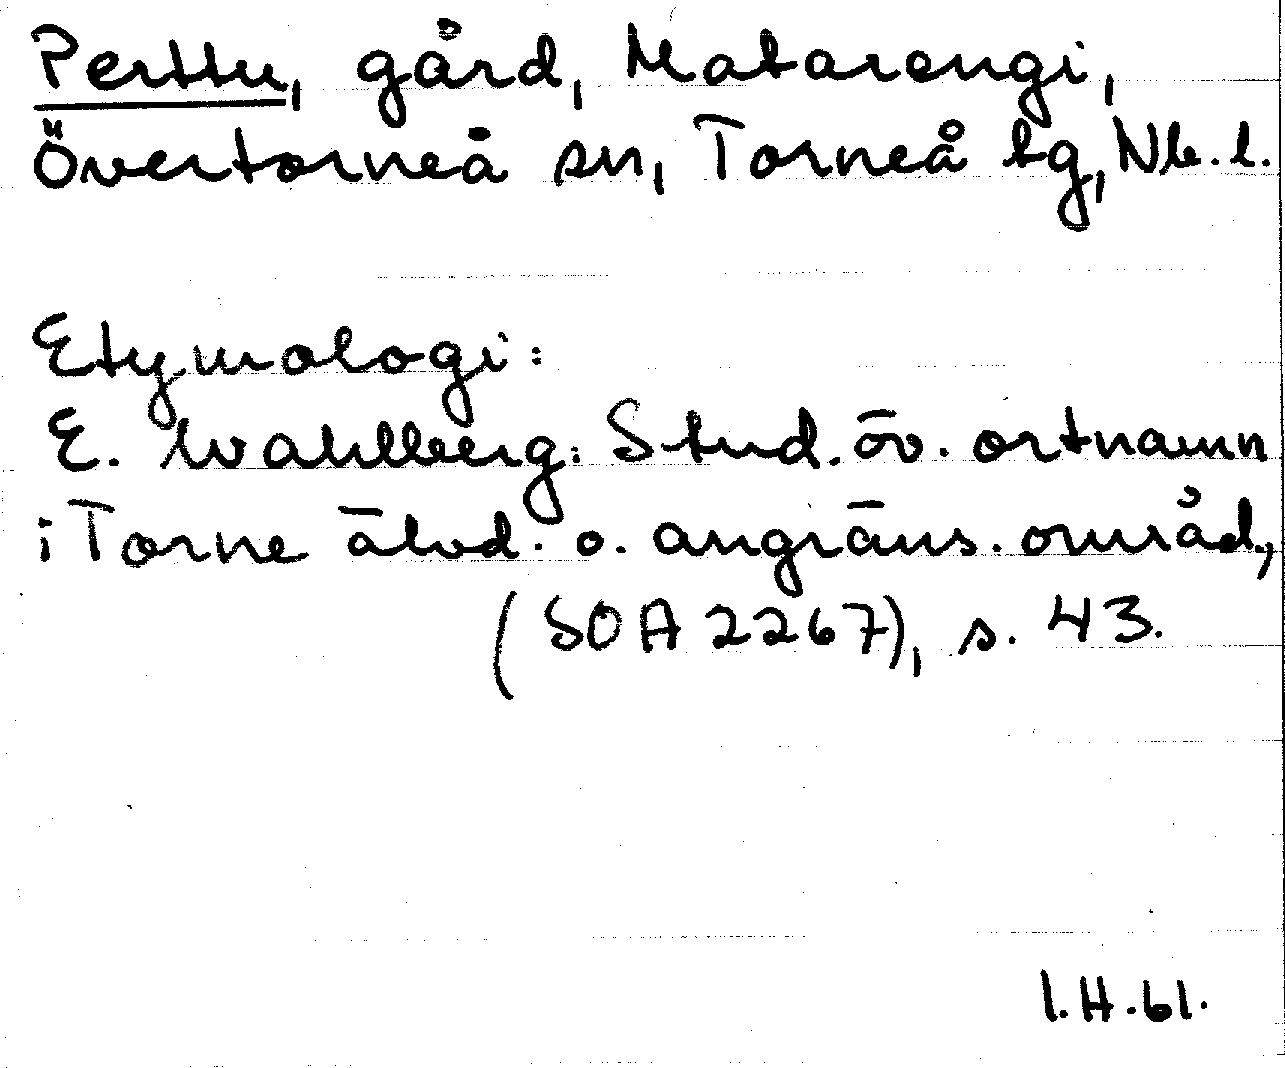 Perttu, gård, Matarengi,
Övertorneå sn, Torneå tg, Nb. l.
Etymologi:
E. Wahlberg: Stud. öv. ortnamn
i Torne älvd. o. angräns. områd.,
(SOA 2267), s. 43.
I.H. 61.